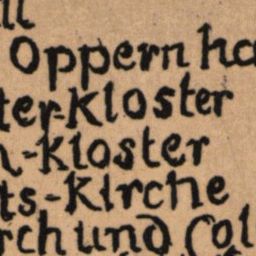 ll
Oppern ha
ter-Kloster
n-Kloster
ts-Kirche
rch und Col